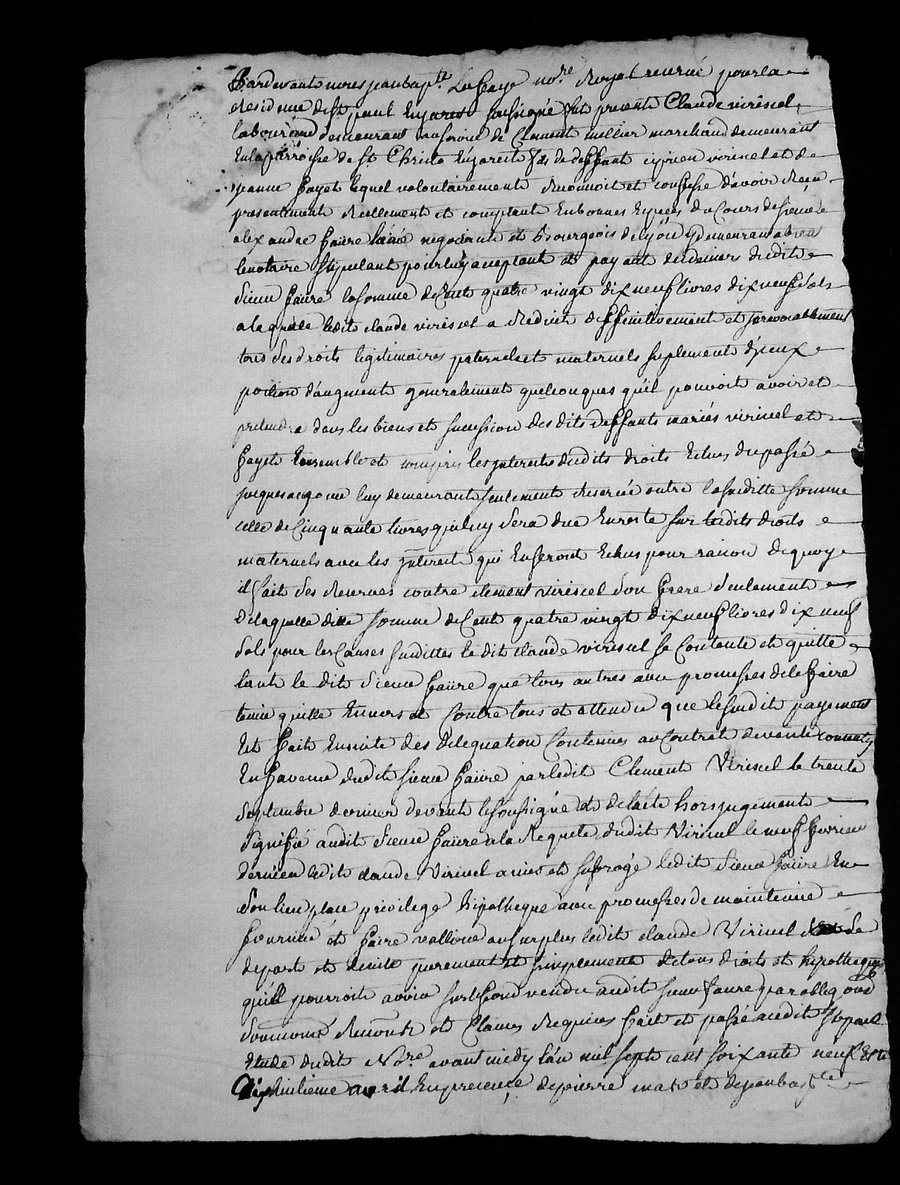 Pardevant nous jean bap.te Lafaye no.re Royal reservé pour la
residence de st paul En jarest soussigné fut present Claude viriscel
laboureur demeurant au service de Clement tullier marchand demeurant
En la parroisse de st Christo En jarest fils de deffunt cyprien viriscel et de
jeanne fayet lequel volontairement Reconnoit et confesse d'avoir Reçu
presentement Reellement et comptant En bonnes Especes du Cours de sieur
alexandre faure laine negociant et Bourgeois de lyon y demeurant absent
le notaire stipulant pour luy acceptant et payant des deniers dudit
sieur faure la somme de Cent quatre vingt dix neuf livres dix neuf sols
a laquelle ledit claude viriscel a Reduit deffinitivement et irrevocablement
tous ses droits legitimaires paternels et maternels suplement d'iceux
portion d'augment generalement quelconques qu'il pouvoit avoir et
pretendre dans les biens et succession des dits deffunts mariés viriscel et
fayet Ensemble et compris les interets dudits droits Echus du passé
jusques a ce jour luy demeurant seulement reservée outre la susditte somme
celle de Cinquante livres qui luy sera due En reste sur lesdits droits
maternels avec les interest qui En seront Echus pour raison de quoy
il fait ses Reserves contre clement viriscel son frere seulement
de laquelle ditte somme de Cent quatre vingt dix neuf livres dix neuf
sols pour les Causes susdittes le dit claude viriscel se Contente et quitte
tant le dit sieur faure que tous autres avec promesses de le faire
tenir quitte Envers et Contre tous et attendu que le susdit payement
Est fait Ensuite des delegation Contenues au Contrat de vente consenty
En faveur dudit sieur faure par ledit Clement Viriscel le trente
Septembre dernier devant le soussigné et de l'acte hors jugement
signifié audit sieur faure a la Requete dudit Viriscel le neuf fevrier
dernier ledit claude Viriscel a mis et subrogé ledit sieur faure En
son lieu place privilege hipotheque avec promesses de maintenir
fournir et faire valloir au surplus ledit claude Viriscel se
departe et desiste purement et simplement de tous droits et hipotheques
qu'il pourroit avoir sur le fond vendu audit sieur faure par oblig.ons
soumions Renons et Clauses Requises fait et passé audit st paul
Etude dudit No.re avant midy l'an mil sept cent soixante neuf et le
dixhuitieme avril En presence de pierre mat et de jean bap.te